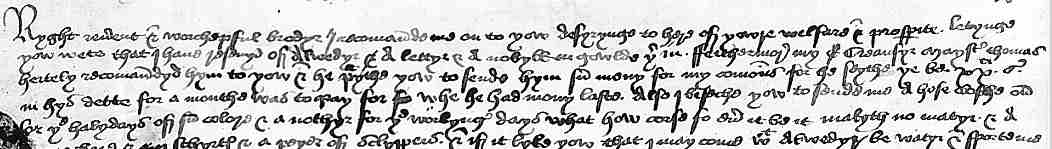 Ryght reuent & worchepful brodyr I recomaunde me on to yow desyrynge to here off yowre welfare & prosperite letynge
yow wete that I haue resevyd off Alwedyr a lettyr & a nobyll in gowlde yr in. Ffurthermor my Creansyr Mayster thomas
hertely recomandyd hym to yow & he praythe yow to sende hym sum mony for my comons for he seythe ye be xx s
in hys dette for a monthe was to pay for when he had mony laste. Also I beseche yow to sende me a hose clothe on
for ye halydays off sum colore & a nothyr for ye workyng days what how corse so euer it be it makyth no matyr & a
schyrtes & a peyer off sclyppers. & if it lyke yow that I may come wt Alwedyr be watyr & sporte me